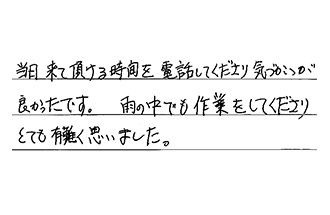 当日来て頂ける時間を電話してくださり気づかいが
良かったです。 雨の中でも作業をしてくださり
とても有難く思いました。